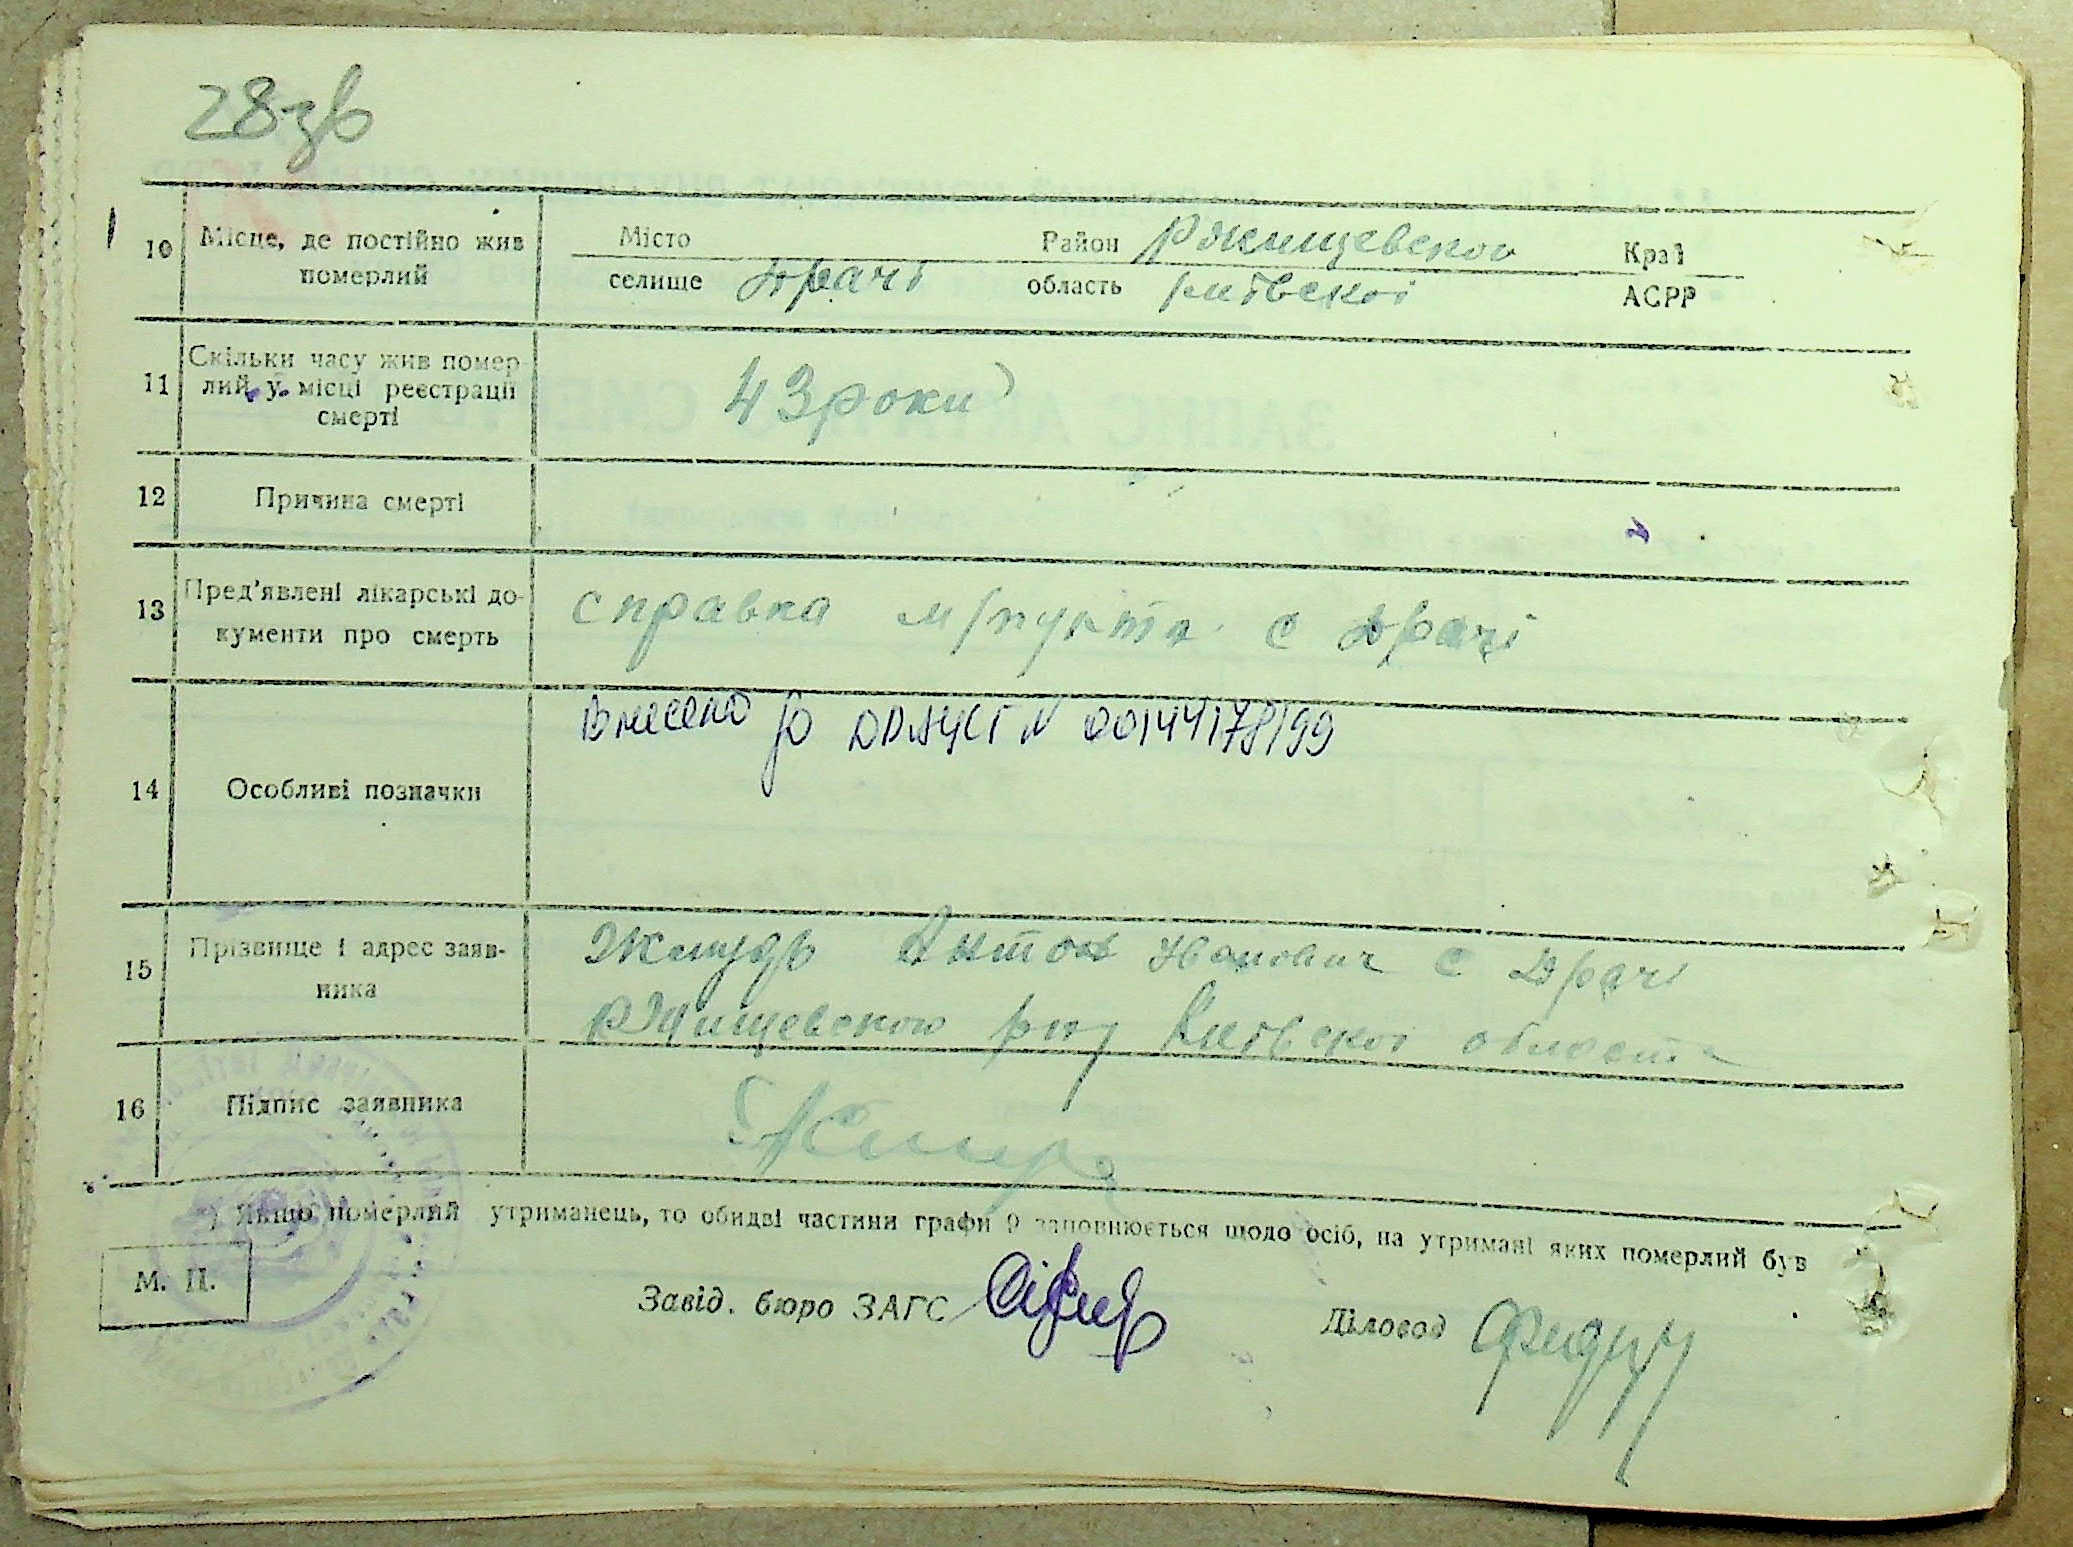 28 зв
10 Місце, де постійно жив Місто Район Ржищевской Краї
померлий селище Драчі область Київскої АСРР
11 Скільки часу жив помер
лий у місці реєстрації 43 роки
смерті
12 Причина смерті
13 Пред'явлені лікарські до- справка м/пункта с Драчі
кументи про смерть
Внесено до ДРАЦСГ N 00144178199
14 Особливі позначки
15 Прізвище і адрес заяв- Жмудь Антон Иванович с Драчі
ника Ржищевского р-ну Київскої области
16 Підпис заявника
*) Якщо померлий утриманець, то обидві частини графи 9 заповнюється щодо осіб, на утримані яких померлий був
М. П.
Завід. бюро ЗАГС
Діловод